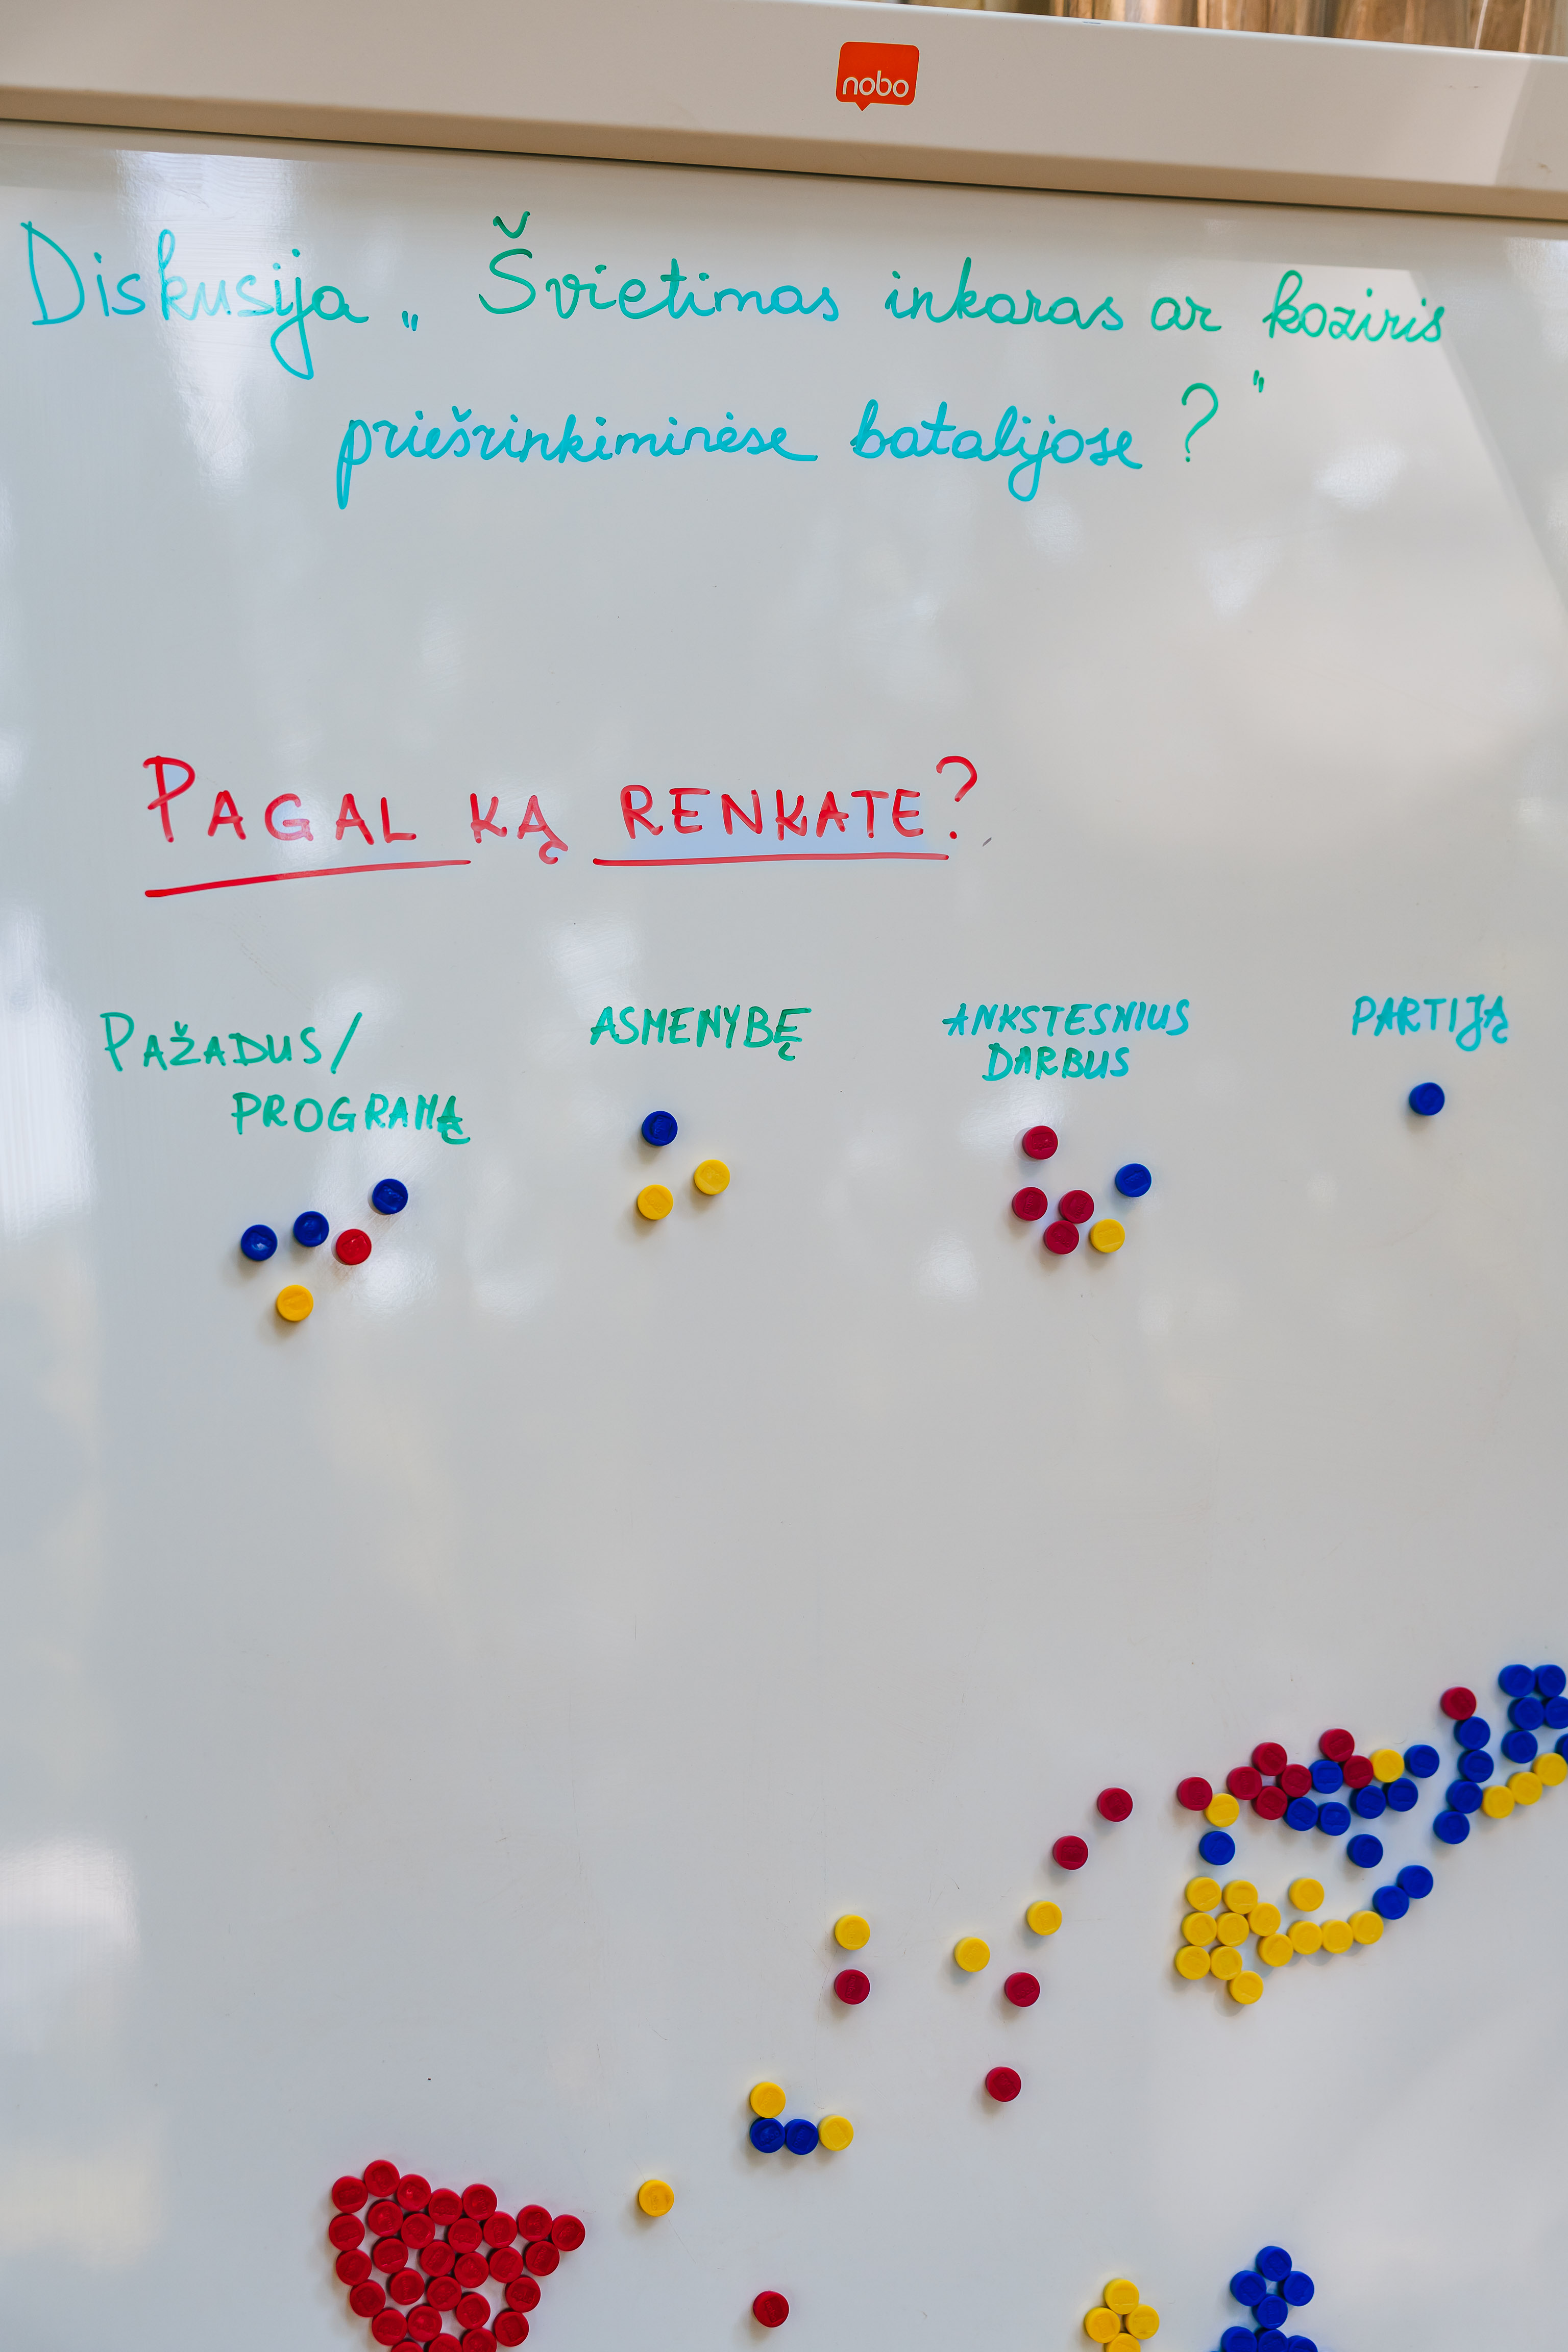 nobo
Diskusija „Švietimas inkaras ar koziris
priešrinkiminėse batalijose?"
PAGAL KĄ RENKATE?
PAŽADUS/
PROGRAMĄ
ASMENYBĘ
ANKSTESNIUS
DARBUS
PARTIJĄ